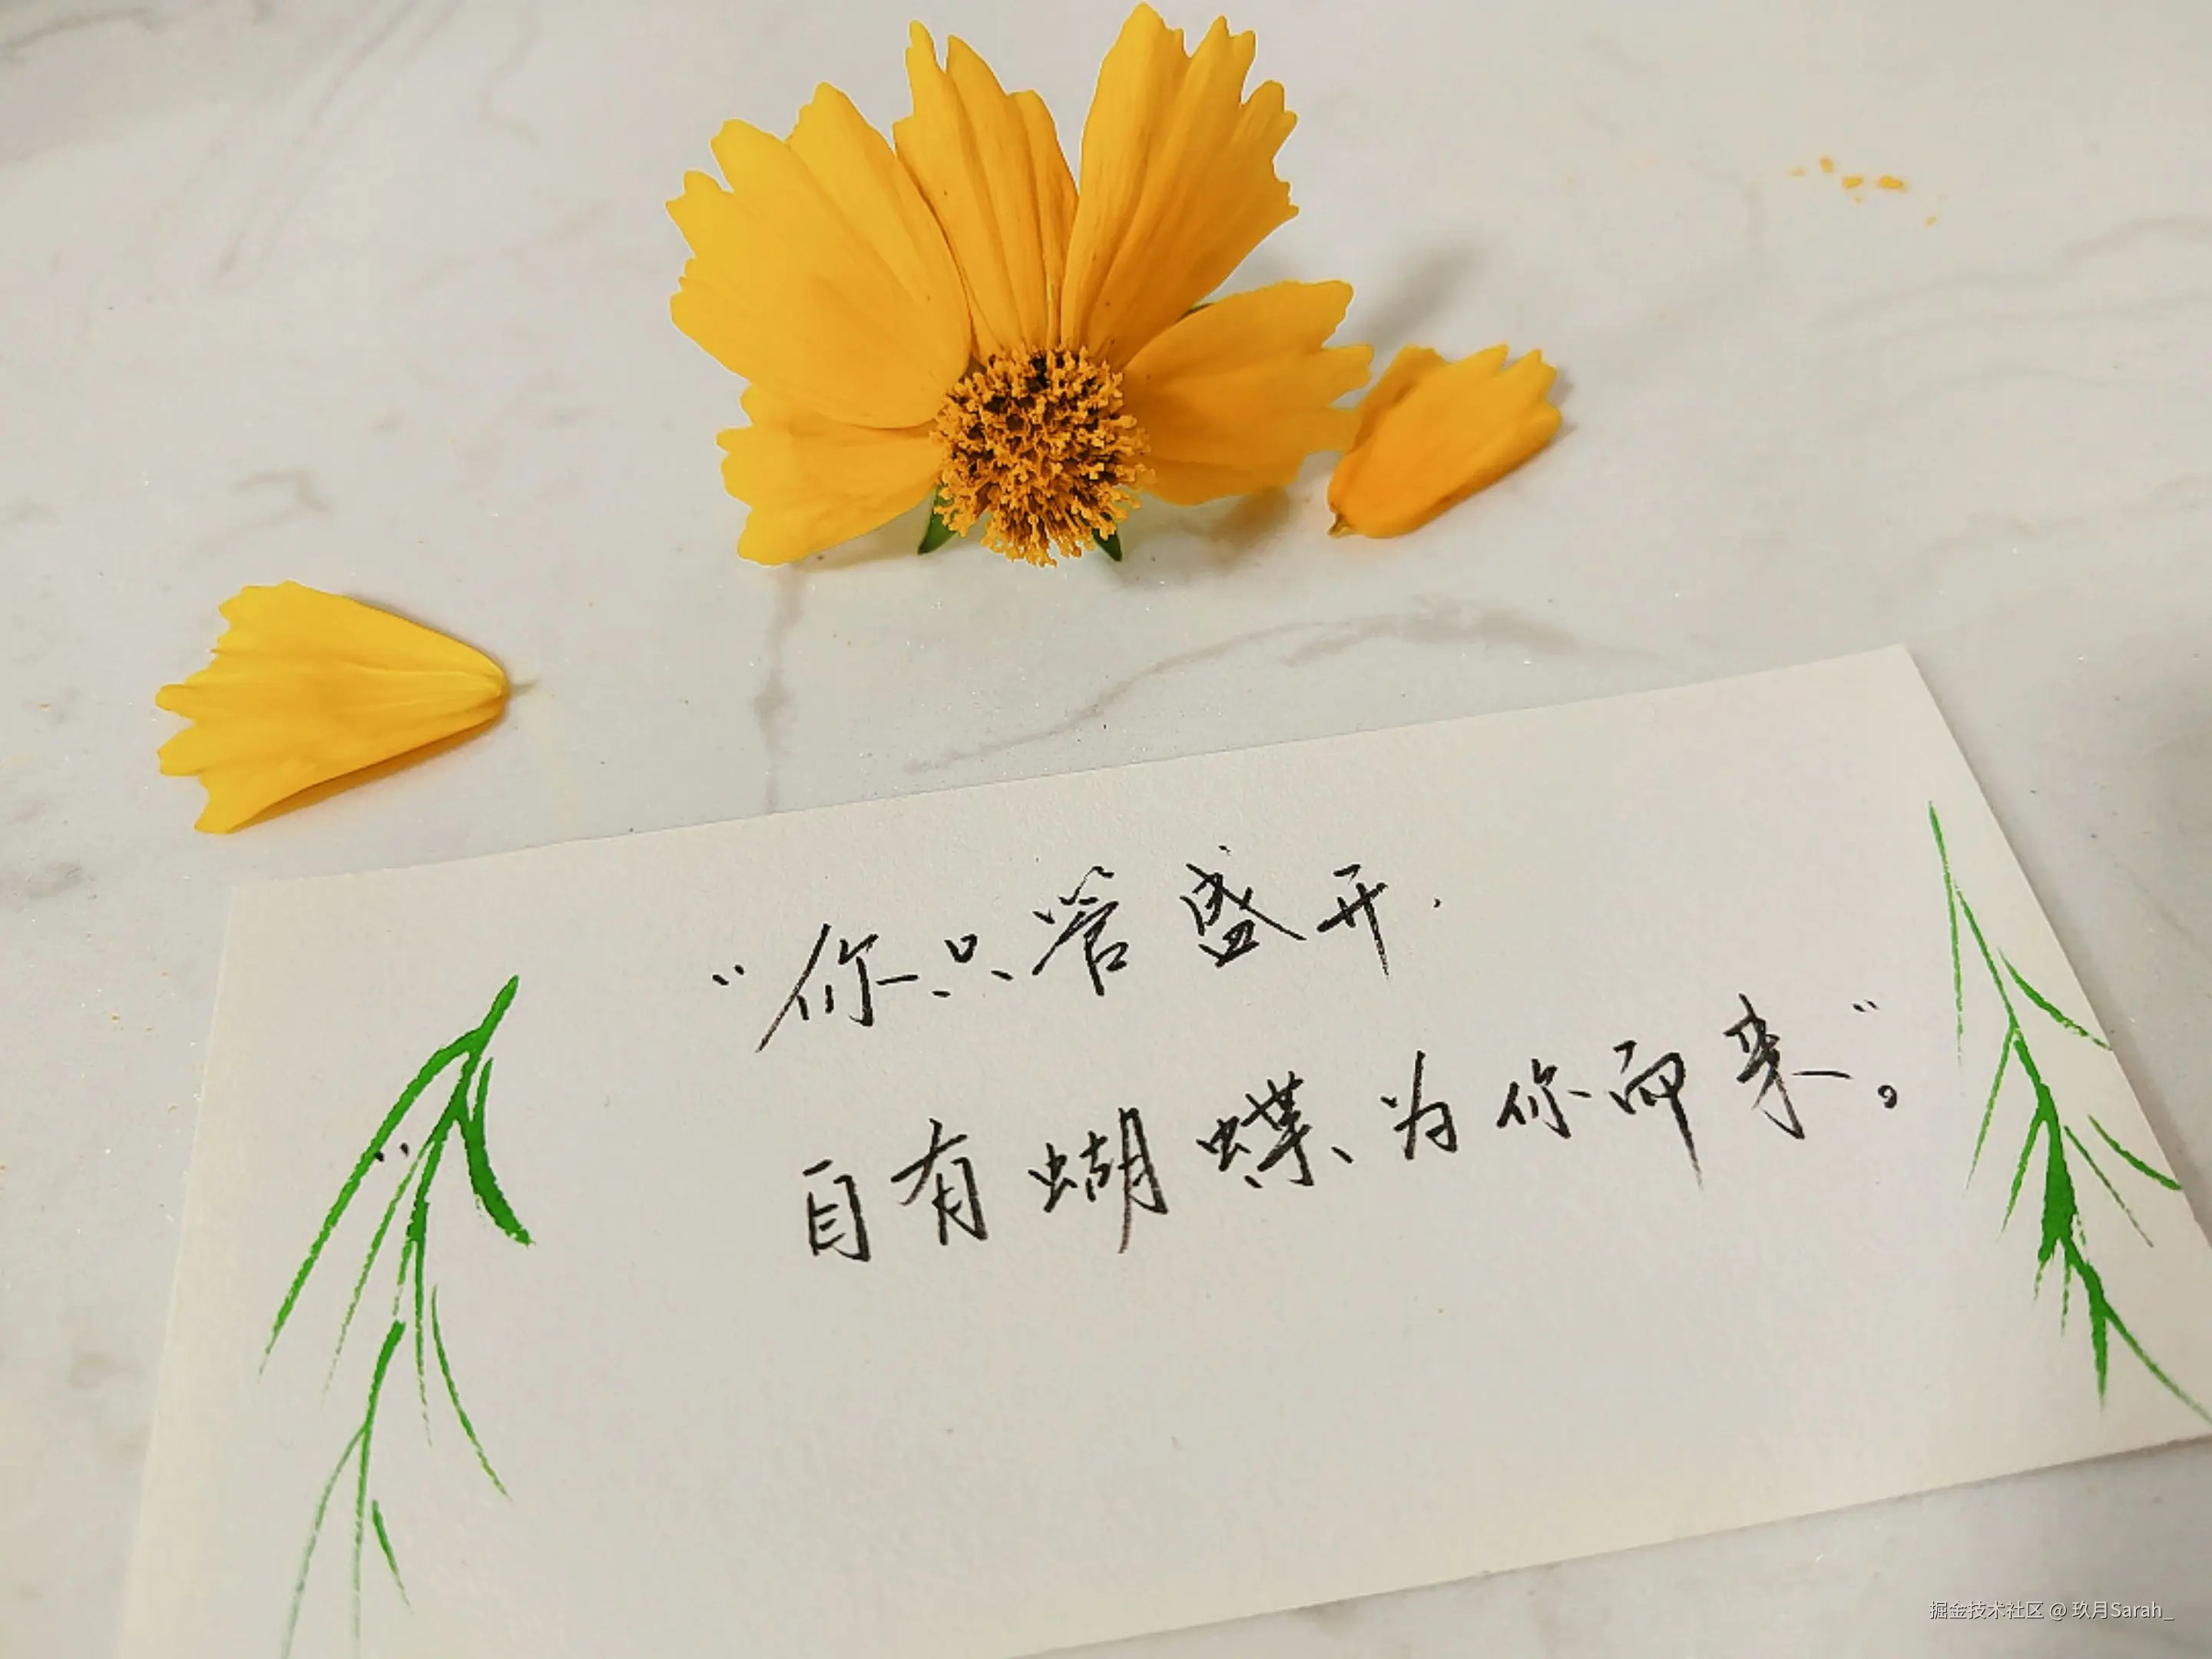 “你只管盛开，
自有蝴蝶为你而来”。
掘金技术社区 @ 玖月Sarah_